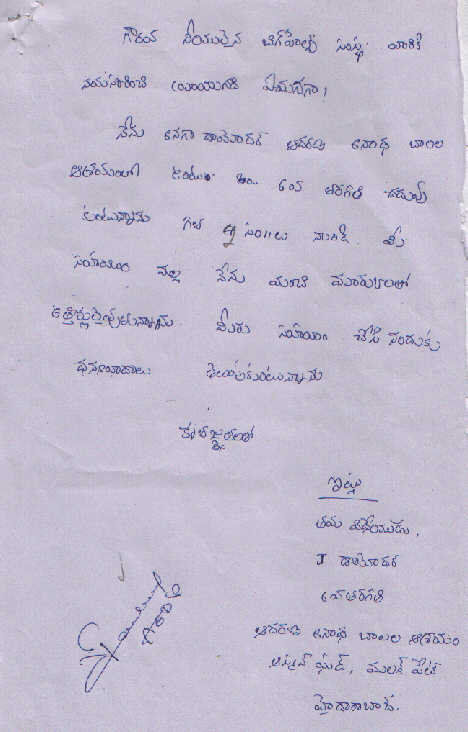 గౌరవ నీయులైన బిగ్‌హెల్ప్ సంస్థ వారికి
నమస్కరించి వ్రాయునది ఏమనగా!
నేను అనగా దామోదర్ ఆదరణ అనాథ బాలల
ఆశ్రమంలో ఉంటూ 6వ తరగతి చదువు
కుంటున్నాను గత 4 సం॥లు నుండి మీ
సహాయం వల్ల నేను మంచి మార్కులతో
ఉత్తీర్ణుడినైవున్నాను మీరు సహాయం చేసి నందుకు
ధన్యవాదాలు తెలుపుకుంటున్నాను
కృతజ్ఞతలతో
ఇట్లు
తమ విధేయుడు,
J దామోదర్
6వ తరగతి
ఆదరణ అనాథ బాలల ఆశ్రమం
ఆస్మాన్ ఘడ్, మలక్ పేట
హైదరాబాద్.